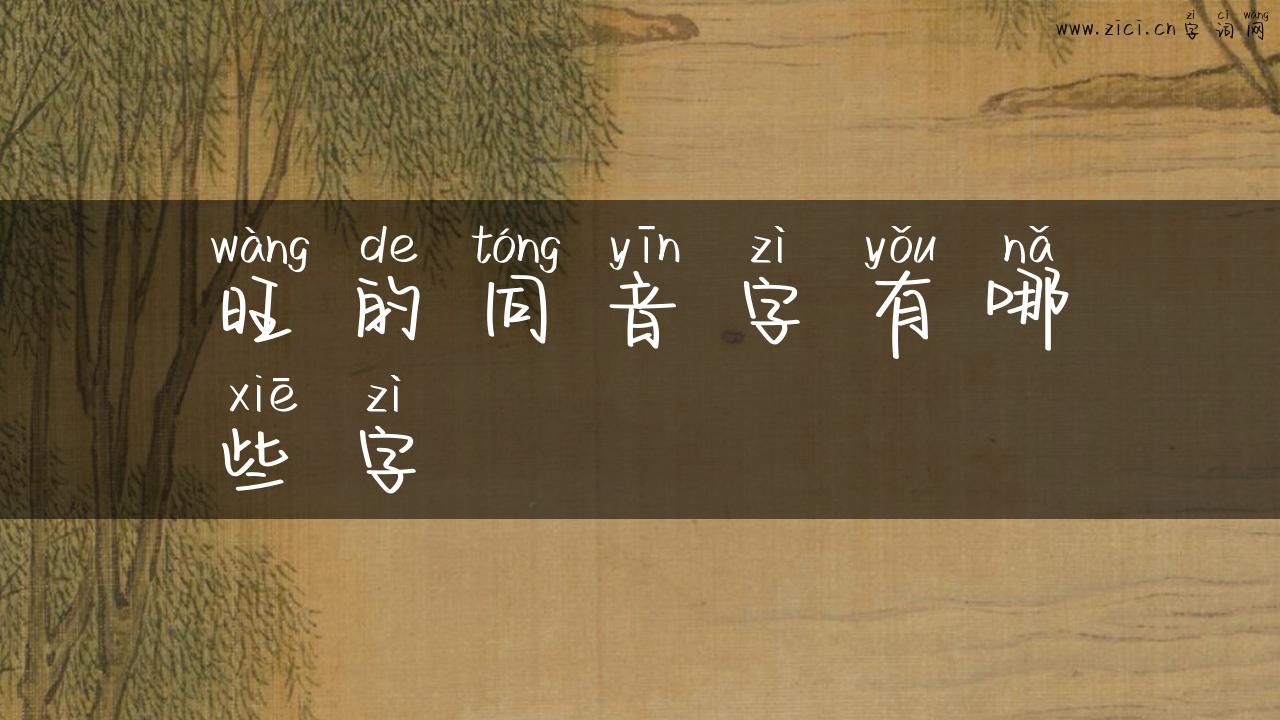 zì cí wǎng
www.zici.cn 字 词 网
wàng de tóng yīn zì yǒu nǎ
旺 的 同 音 字 有 哪
xiē zì
些 字